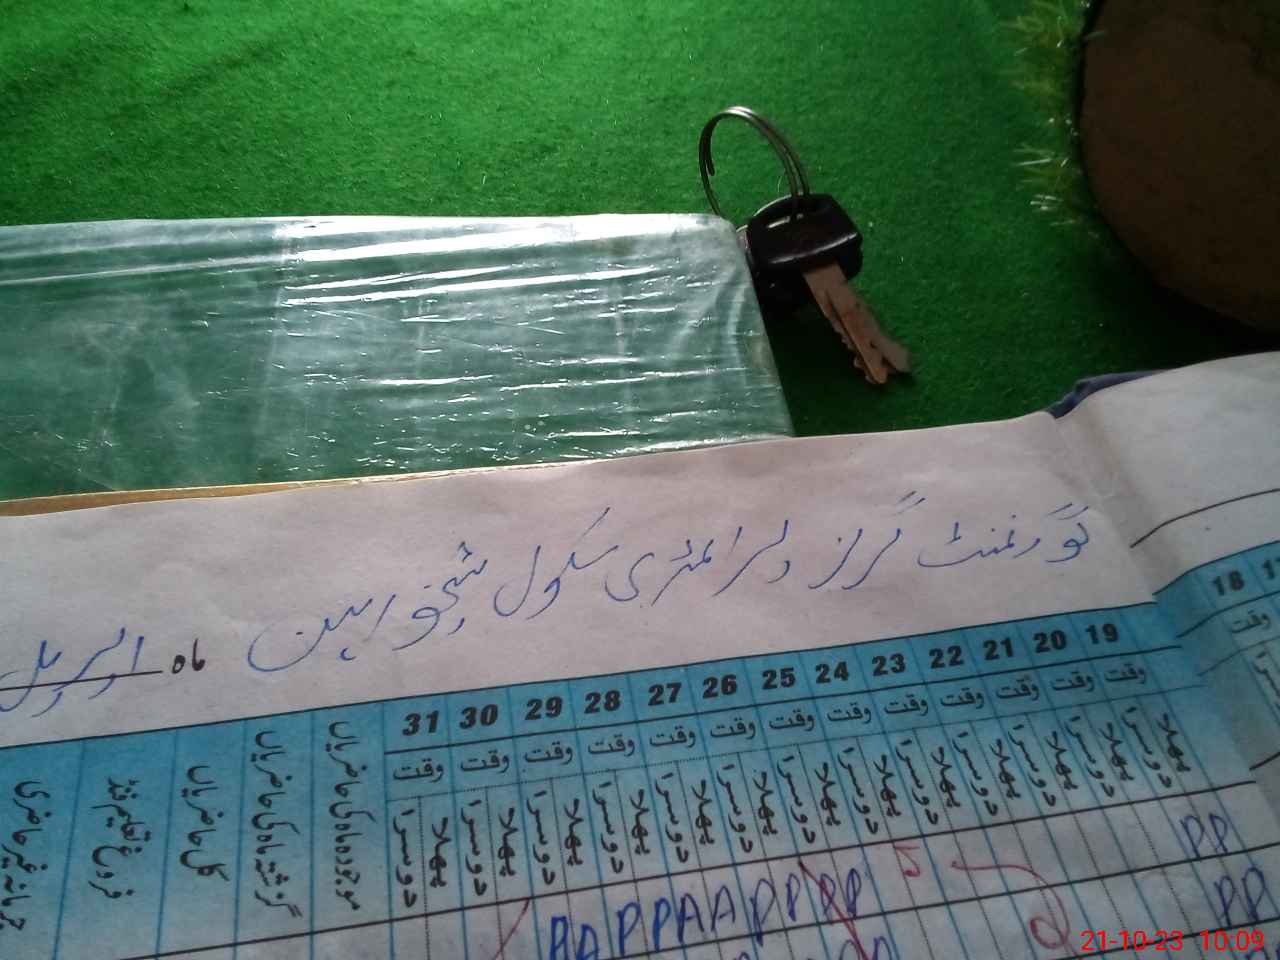 گورنمنٹ گرلز پرائمری سکول
ماہ اپریل
18
19 20 21 22 23 24 25 26 27 28 29 30 31
وقت
وقت وقت وقت وقت وقت وقت وقت وقت وقت وقت وقت وقت وقت
پہلا دوسرا پہلا دوسرا پہلا دوسرا پہلا دوسرا پہلا دوسرا پہلا دوسرا پہلا دوسرا پہلا دوسرا پہلا دوسرا پہلا دوسرا پہلا دوسرا پہلا دوسرا پہلا دوسرا
موجودہ ماہ کی حاضریاں
گزشتہ ماہ کی حاضریاں
کل حاضریاں
فروغ تعلیم فنڈ
جرمانہ غیر حاضری
PP
AAPPAAPPPP
PP
21-10-23 10:09